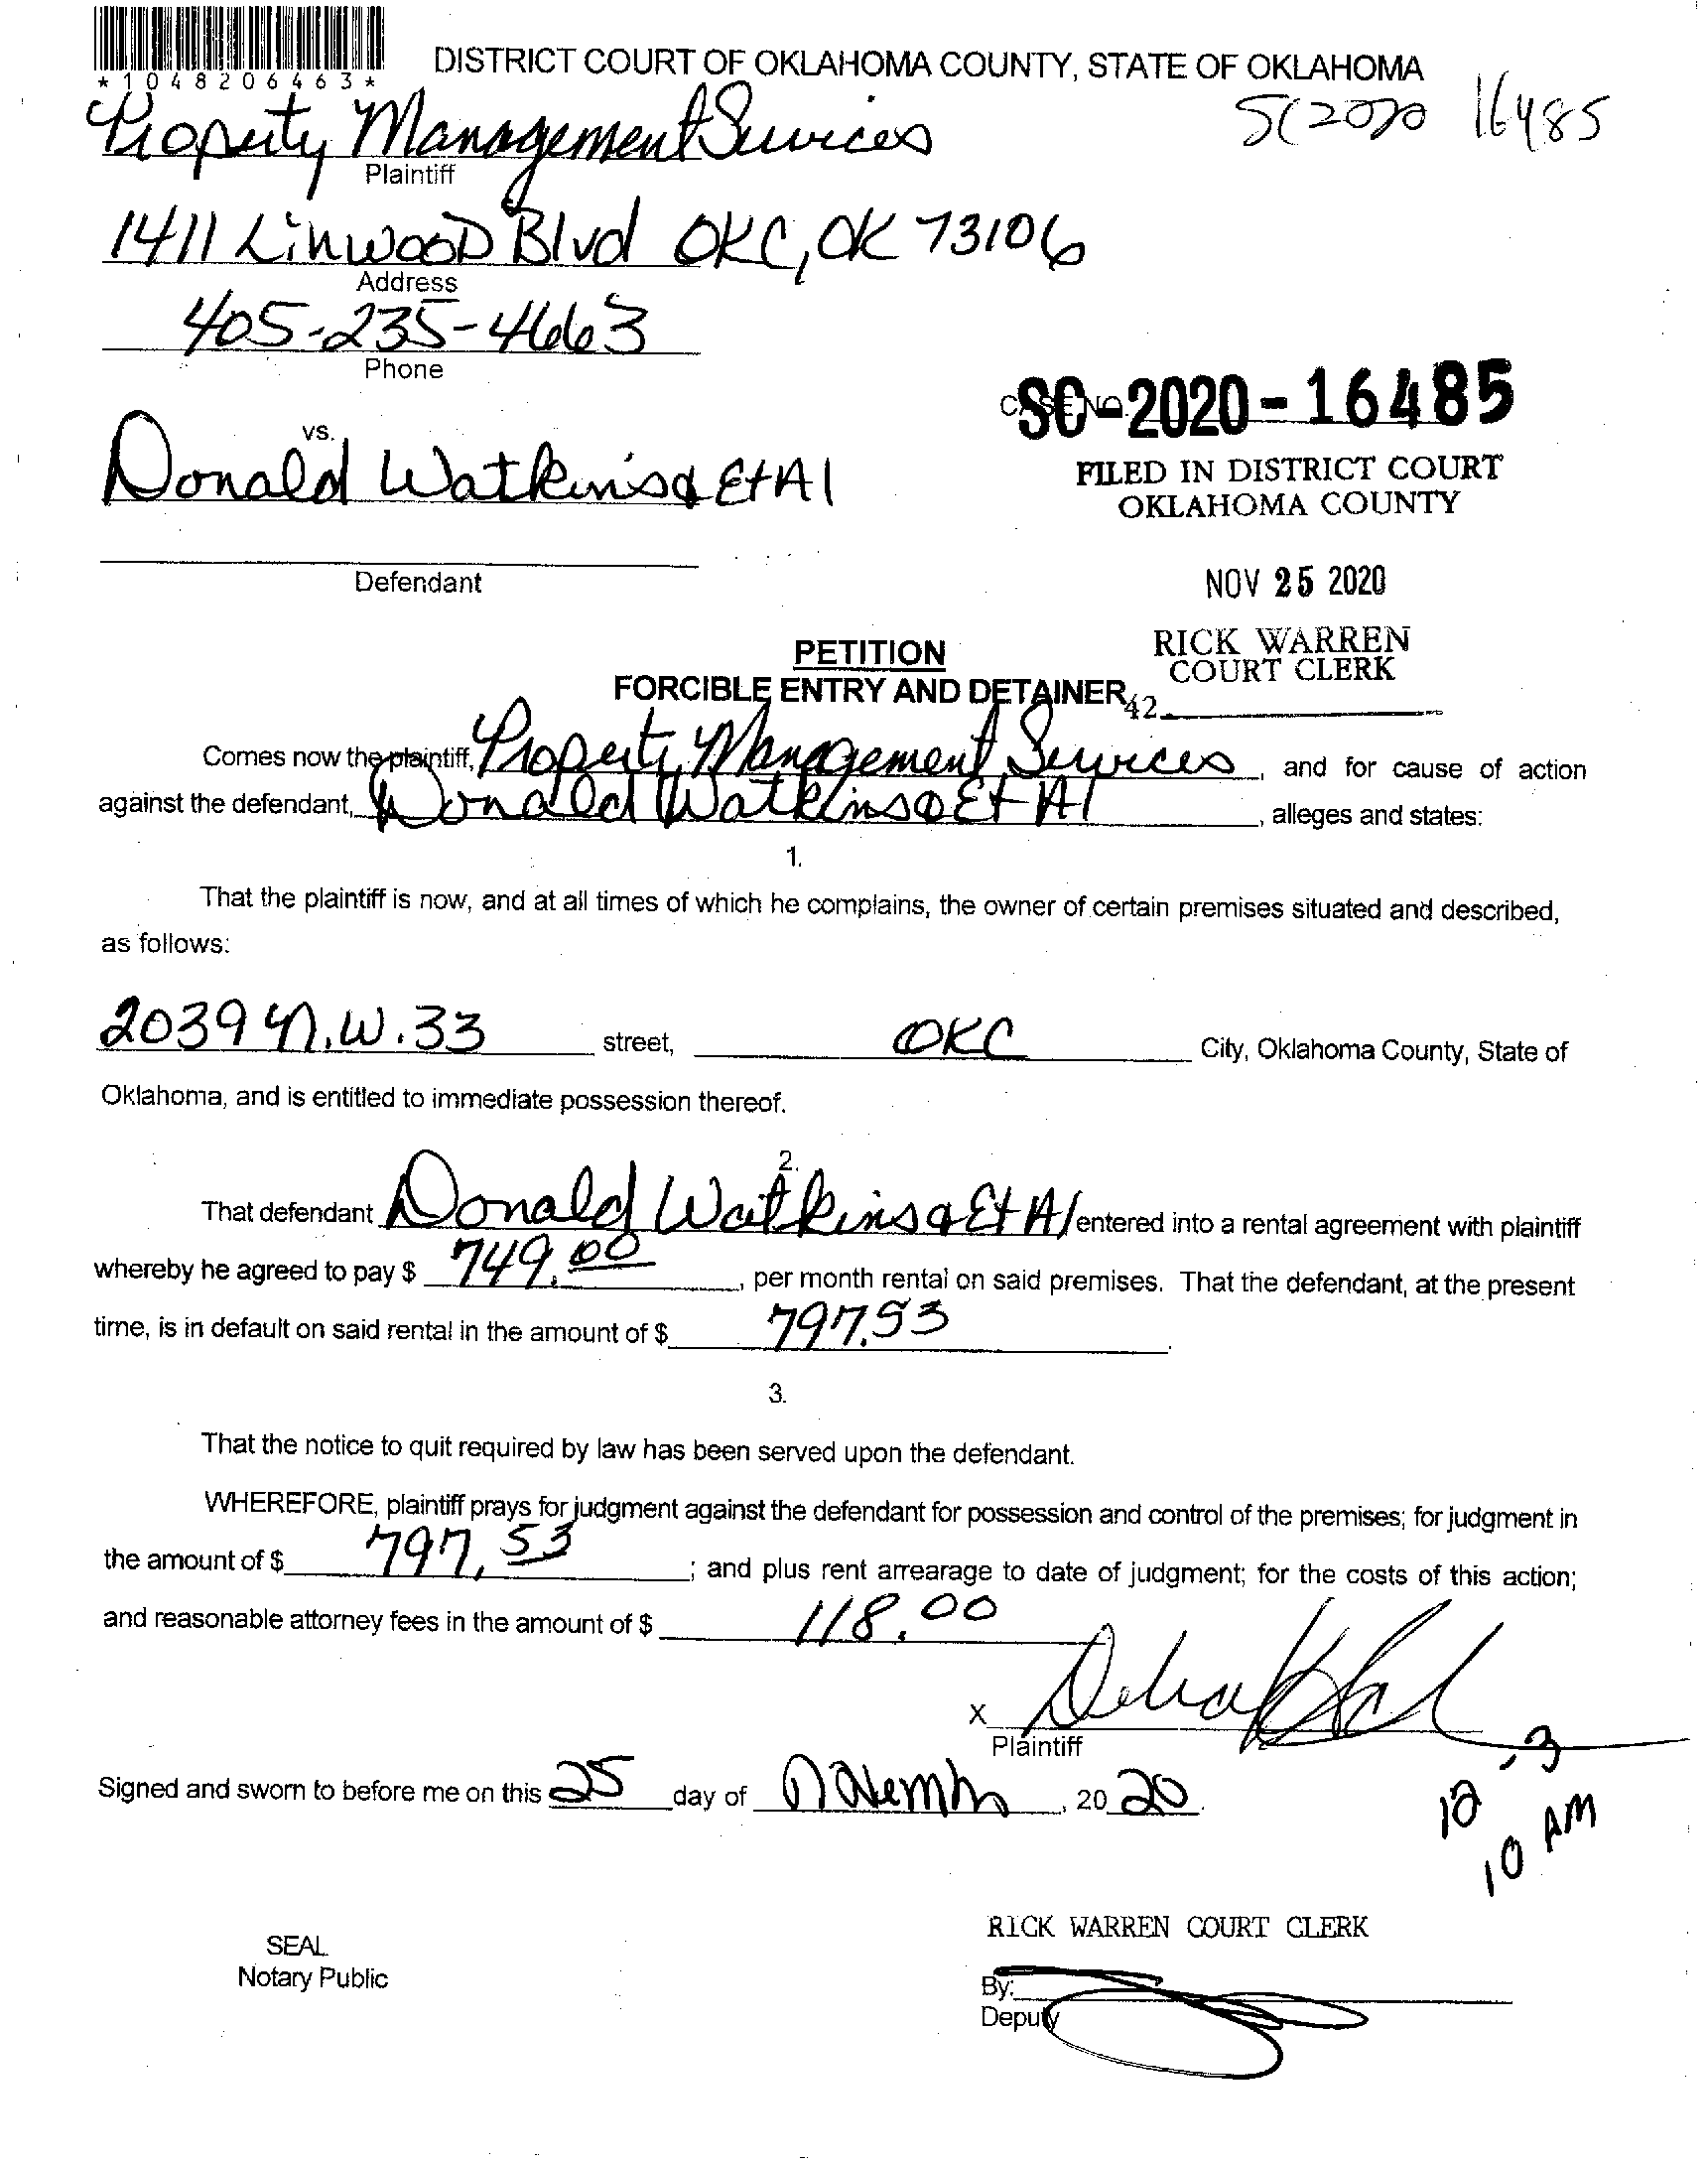 *1048206463*
DISTRICT COURT OF OKLAHOMA COUNTY, STATE OF OKLAHOMA
SC2020 16485
Property Management Services
Plaintiff
1411 Linwood Blvd OKC, OK 73106
Address
405-235-4663
Phone
CASE NO.
SC-2020-16485
vs.
Donald Watkins & Et Al
FILED IN DISTRICT COURT
OKLAHOMA COUNTY
Defendant
NOV 25 2020
RICK WARREN
COURT CLERK
42
PETITION
FORCIBLE ENTRY AND DETAINER
Comes now the plaintiff, Property Management Services, and for cause of action
against the defendant, Donald Watkins & Et Al, alleges and states:
1.
That the plaintiff is now, and at all times of which he complains, the owner of certain premises situated and described,
as follows:
2039 N.W. 33 street, OKC City, Oklahoma County, State of
Oklahoma, and is entitled to immediate possession thereof.
2.
That defendant Donald Watkins & Et Al entered into a rental agreement with plaintiff
whereby he agreed to pay $ 749.00, per month rental on said premises. That the defendant, at the present
time, is in default on said rental in the amount of $ 797.53.
3.
That the notice to quit required by law has been served upon the defendant.
WHEREFORE, plaintiff prays for judgment against the defendant for possession and control of the premises; for judgment in
the amount of $ 797.53; and plus rent arrearage to date of judgment; for the costs of this action;
and reasonable attorney fees in the amount of $ 118.00
X
Plaintiff
Signed and sworn to before me on this 25 day of November, 20 20.
12-3
10 AM
RICK WARREN COURT CLERK
SEAL
Notary Public
By:
Deputy